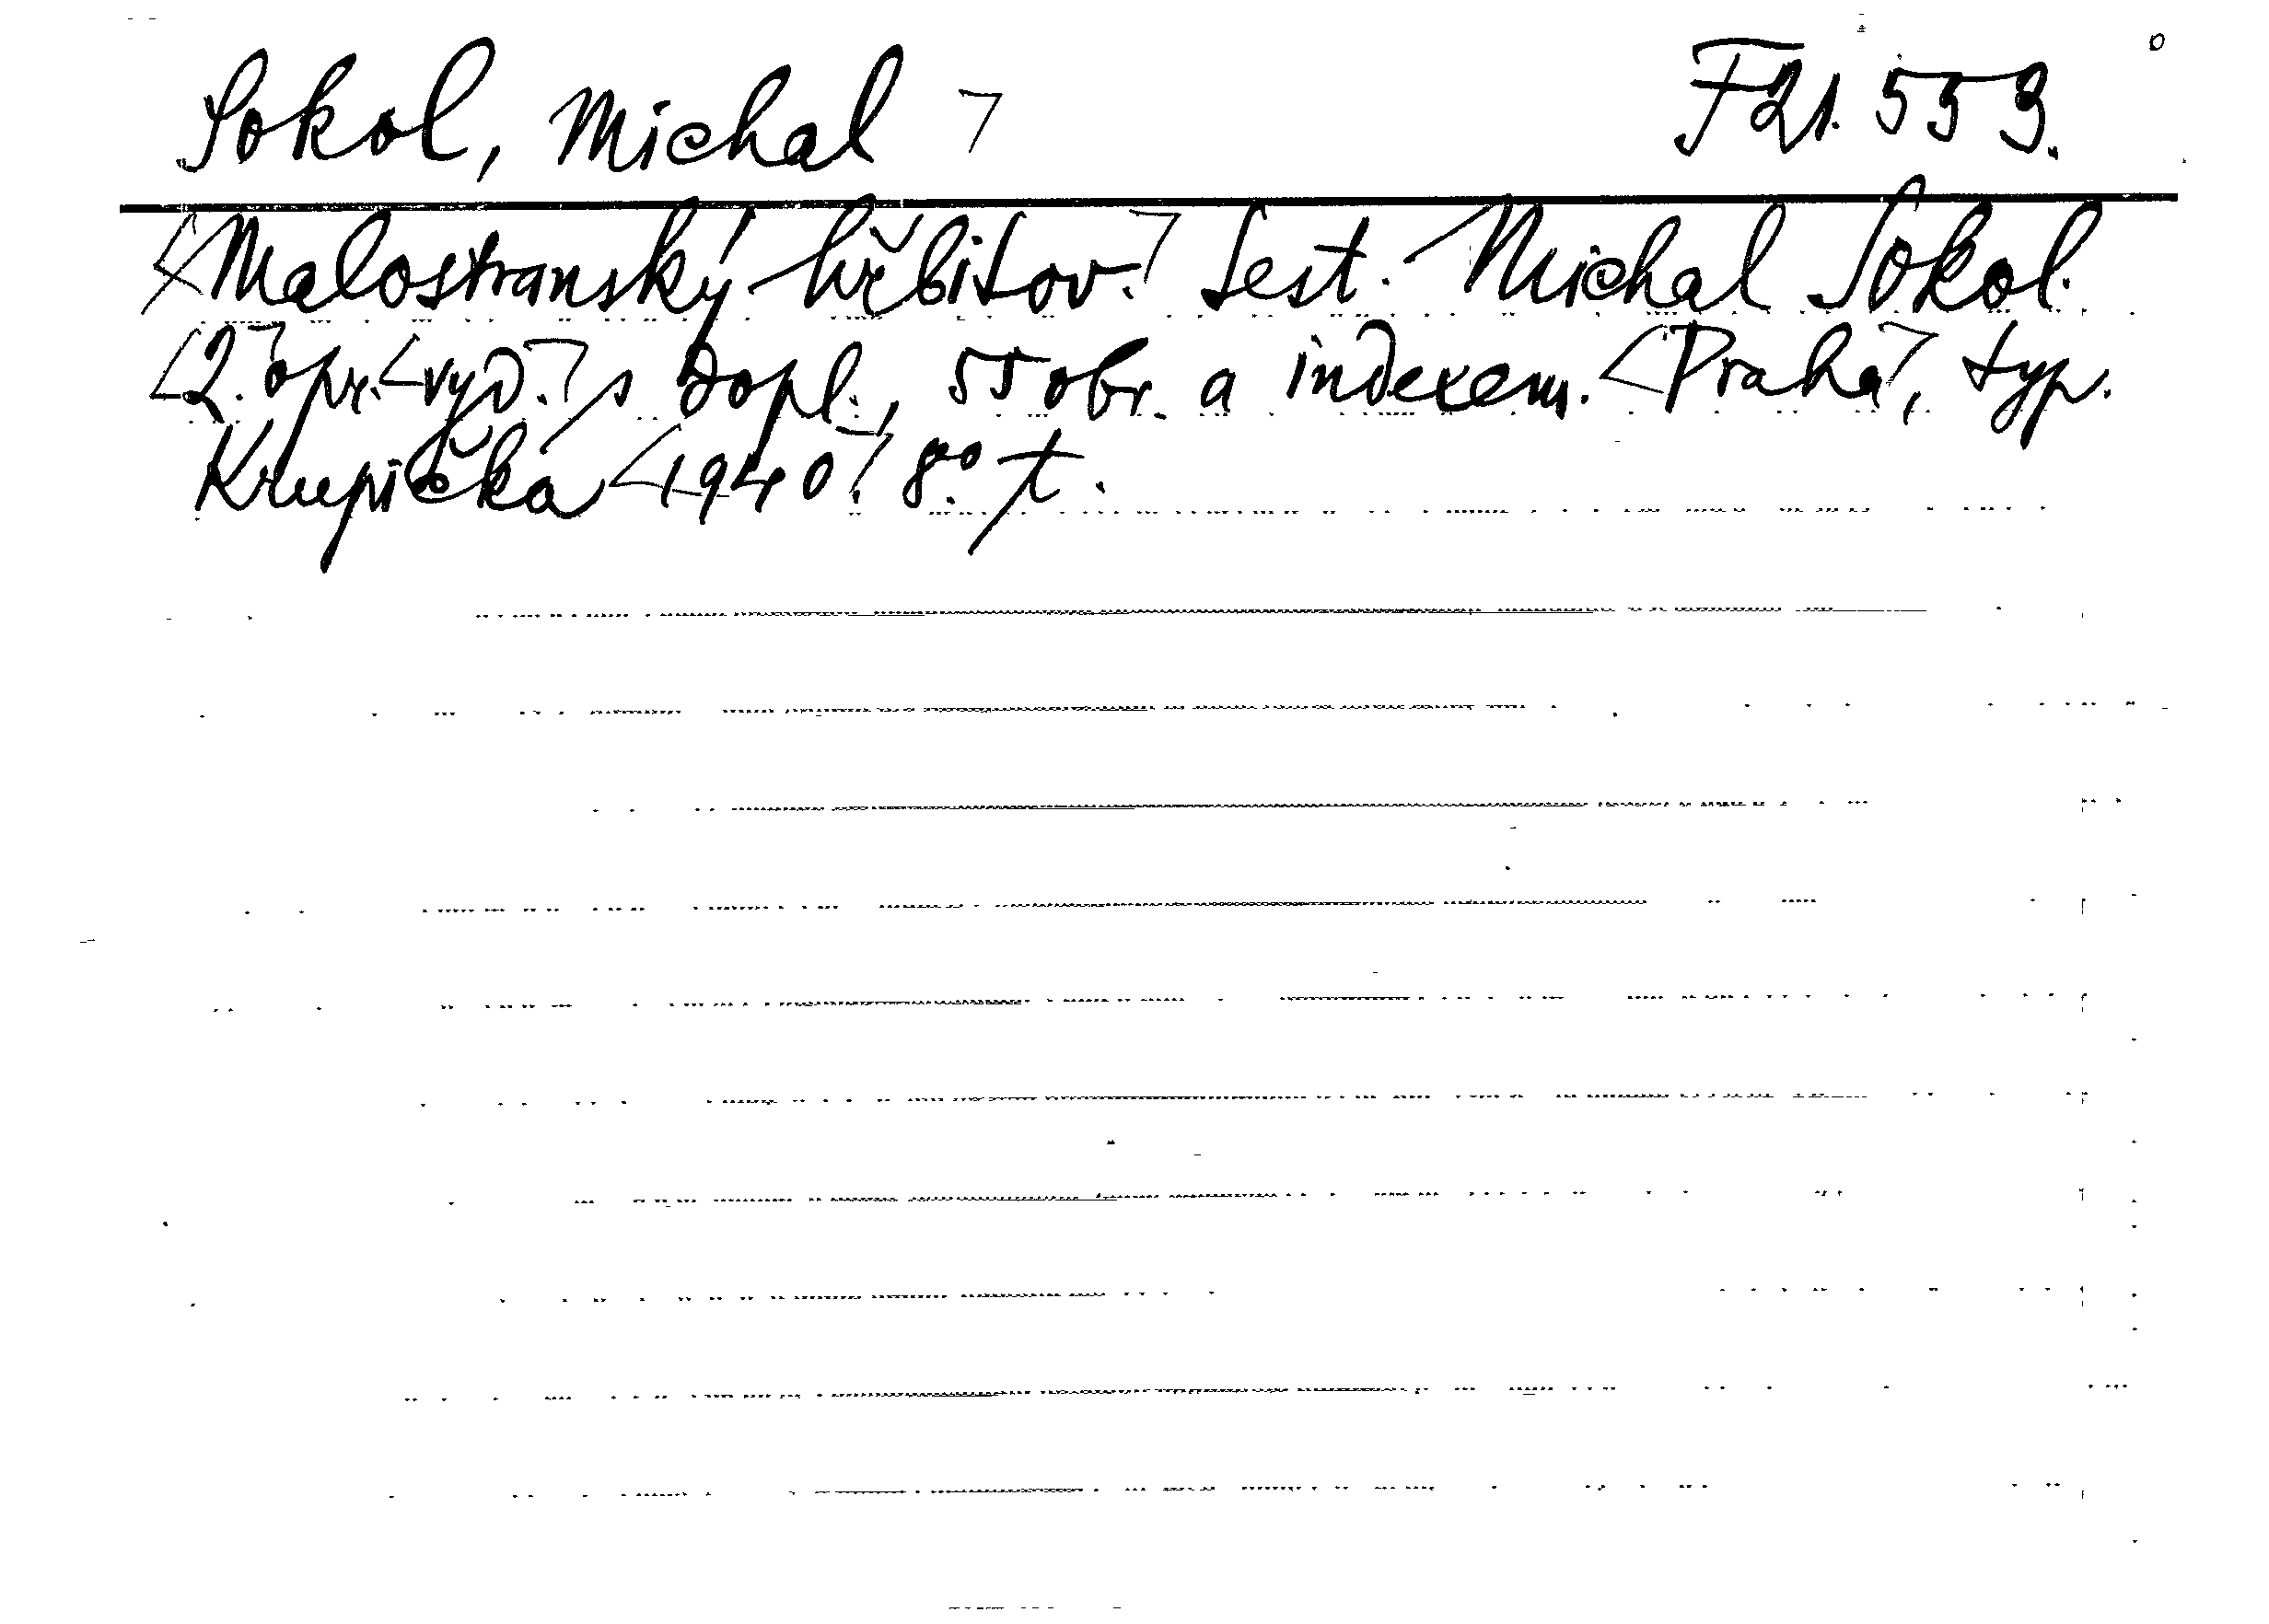 Sokol, Michal ⌉ F 21.553.
<Malostranský hřbitov.⌉ Sest. Michal Sokol.
<2.⌉ opr. <vyd.⌉ s dopl., 55 obr. a indexem. <Praha⌉, typ.
Krupička <1940⌉. 8° t.